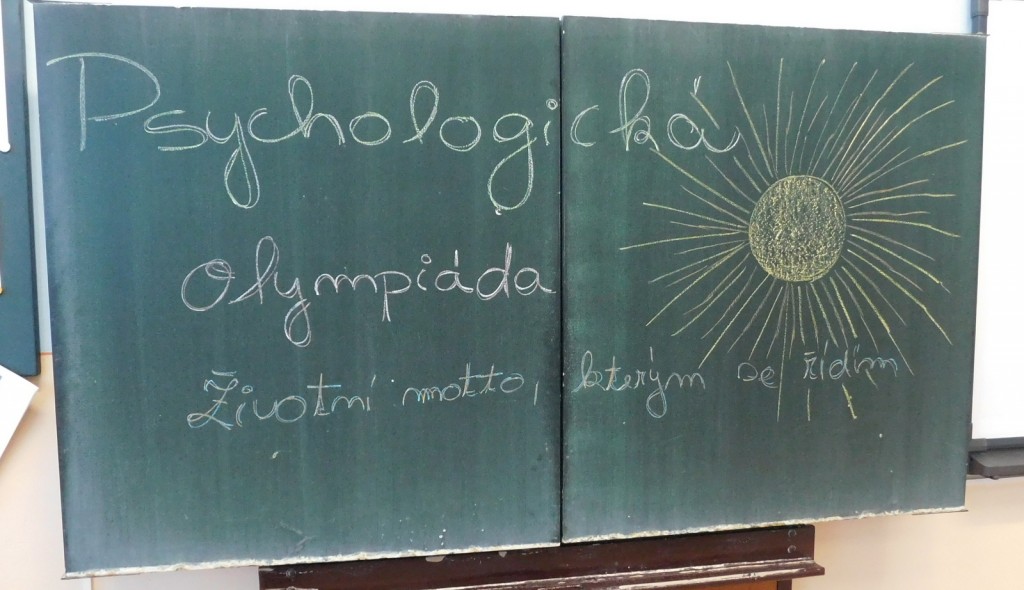 Psychologická
Olympiáda
Životní motto, kterým se řídím